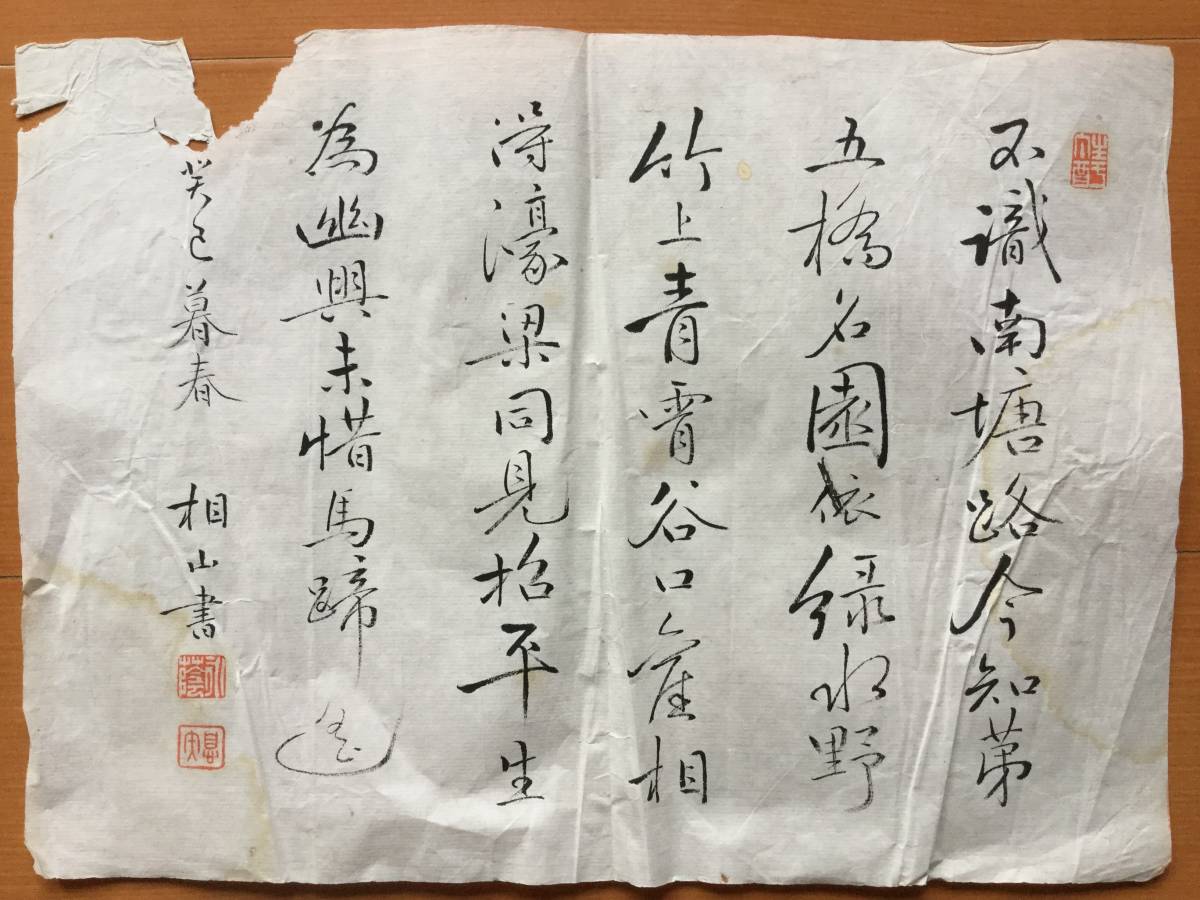 不識南塘路今知第
五橋名園依綠水野
竹上青霄谷口舊相
得濠梁同見招平生
為幽興未惜馬蹄遙
癸巳暮春 相山書